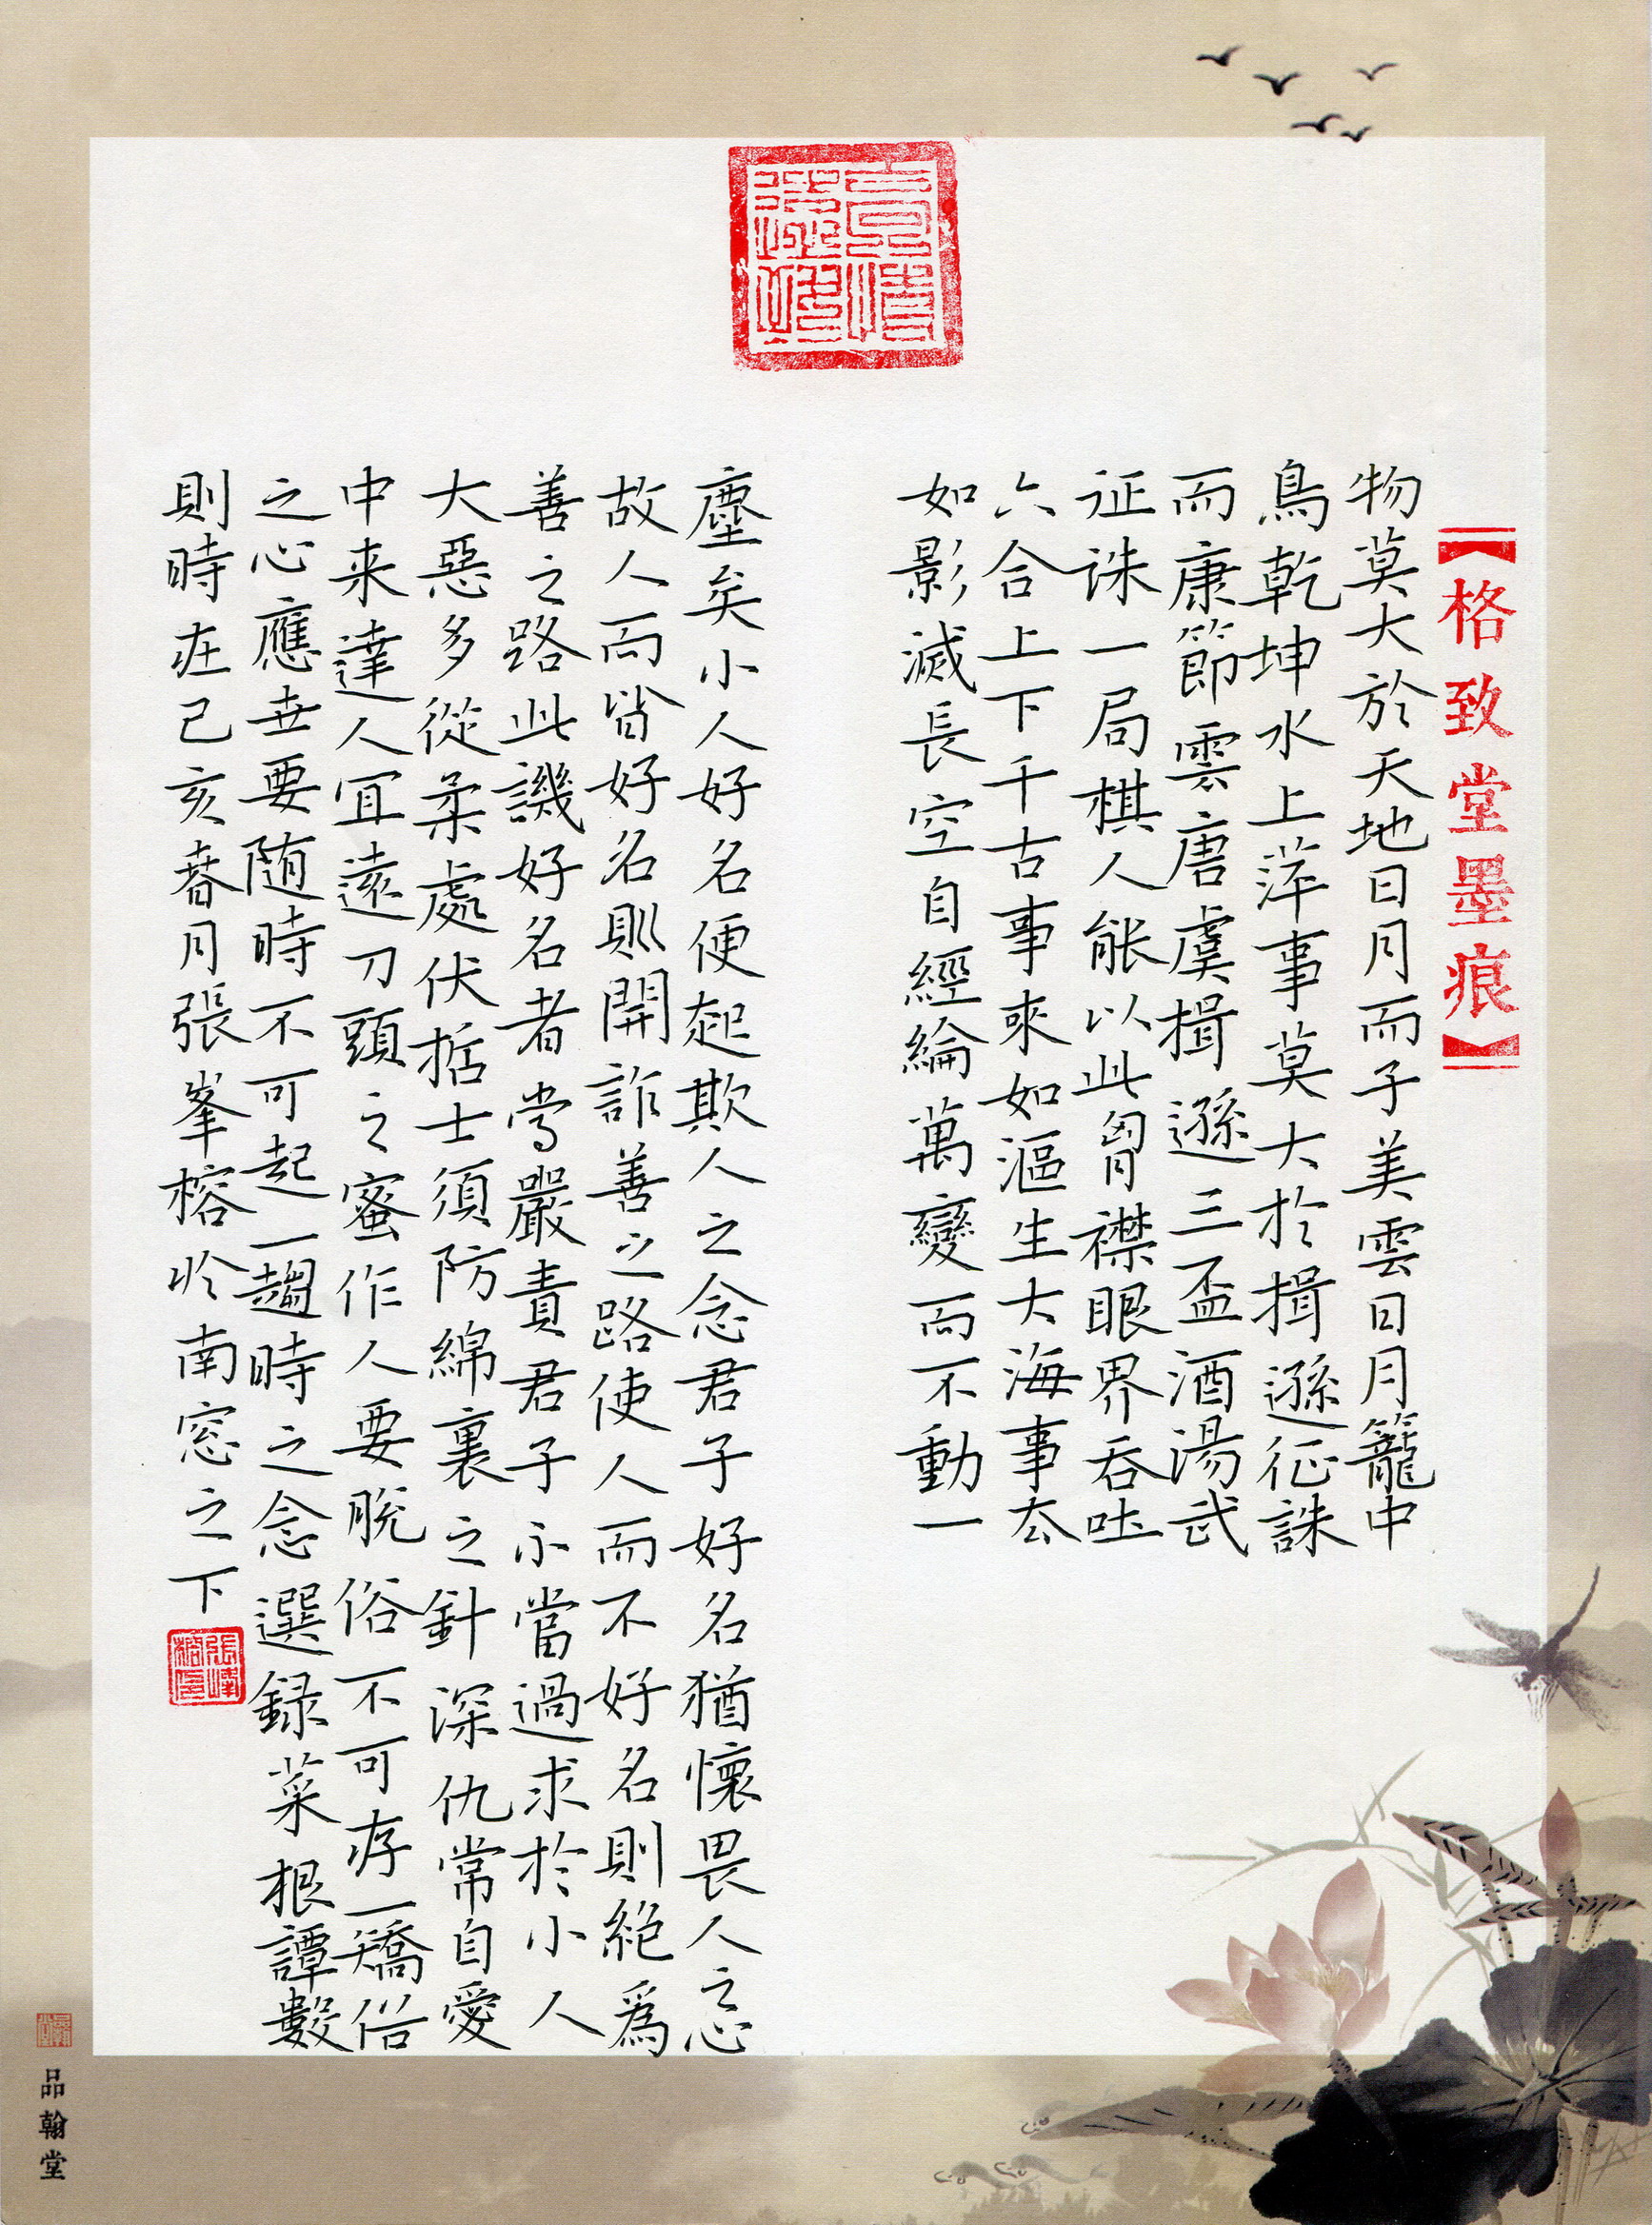 【格致堂墨痕】
物莫大於天地日月而子美雲日月籠中
鳥乾坤水上萍事莫大於揖遜征誅
而康節雲唐虞揖遜三盃酒湯武
征誅一局棋人能以此胷襟眼界吞吐
六合上下千古事來如漚生大海事去
如影滅長空自經綸萬變而不動一
塵矣小人好名便起欺人之念君子好名猶懷畏人之心
故人而皆好名則開詐善之路使人而不好名則絕爲
善之路此譏好名者當嚴責君子不當過求於小人
大惡多從柔處伏哲士須防綿裏之針深仇常自愛
中来達人宜遠刀頭之蜜作人要脫俗不可存一矯俗
之心應世要随時不可起一趨時之念選録菜根譚數
則時在己亥春月張峯榕於南窓之下
張峰榕印
品翰堂